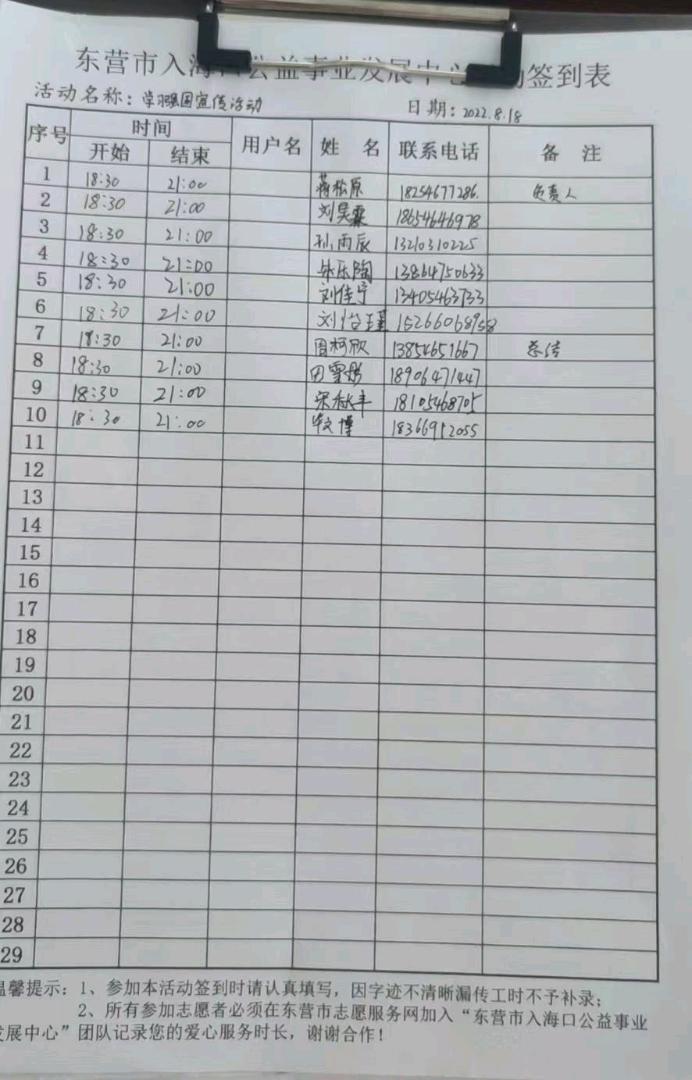 东营市入海口公益事业发展中心 动签到表
活动名称: 学习强国宣传活动 日期: 2022.8.18
序号 时间 用户名 姓 名 联系电话 备 注
开始 结束
1 18:30 21:00 蒋松原 18254677286. 负责人
2 18:30 21:00 刘昊霖 18654646978
3 18:30 21:00 孙雨辰 13210310225
4 18:30 21:00 乐陶 13864750633
5 18:30 21:00 刘佳宁 13405463733
6 18:30 21:00 刘 15266068958
7 18:30 21:00 周柯欣 13854651667 总结
8 18:30 21:00 田雪彤 18906471447
9 18:30 21:00 宋秋丰 18105468705
10 18:30 21:00 博 18366952055
11
12
13
14
15
16
17
18
19
20
21
22
23
24
25
26
27
28
29
温馨提示: 1、参加本活动签到时请认真填写，因字迹不清晰漏传工时不予补录;
2、所有参加志愿者必须在东营市志愿服务网加入“东营市入海口公益事业
发展中心”团队记录您的爱心服务时长，谢谢合作!